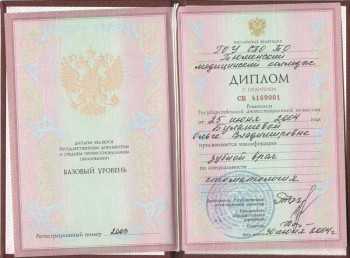 ДИПЛОМ ЯВЛЯЕТСЯ
ГОСУДАРСТВЕННЫМ ДОКУМЕНТОМ
О СРЕДНЕМ ПРОФЕССИОНАЛЬНОМ
ОБРАЗОВАНИИ
БАЗОВЫЙ УРОВЕНЬ
Регистрационный номер 2003
РОССИЙСКАЯ ФЕДЕРАЦИЯ
ГОУ СПО ТО
Тюменский
медицинский колледж
ДИПЛОМ
СБ 4169001
Решением
Государственной аттестационной комиссии
от 25 июня 2004 года
Ольге Владимировне
присуждена квалификация
зубной врач
по специальности
стоматология
30 июня 2004 г.